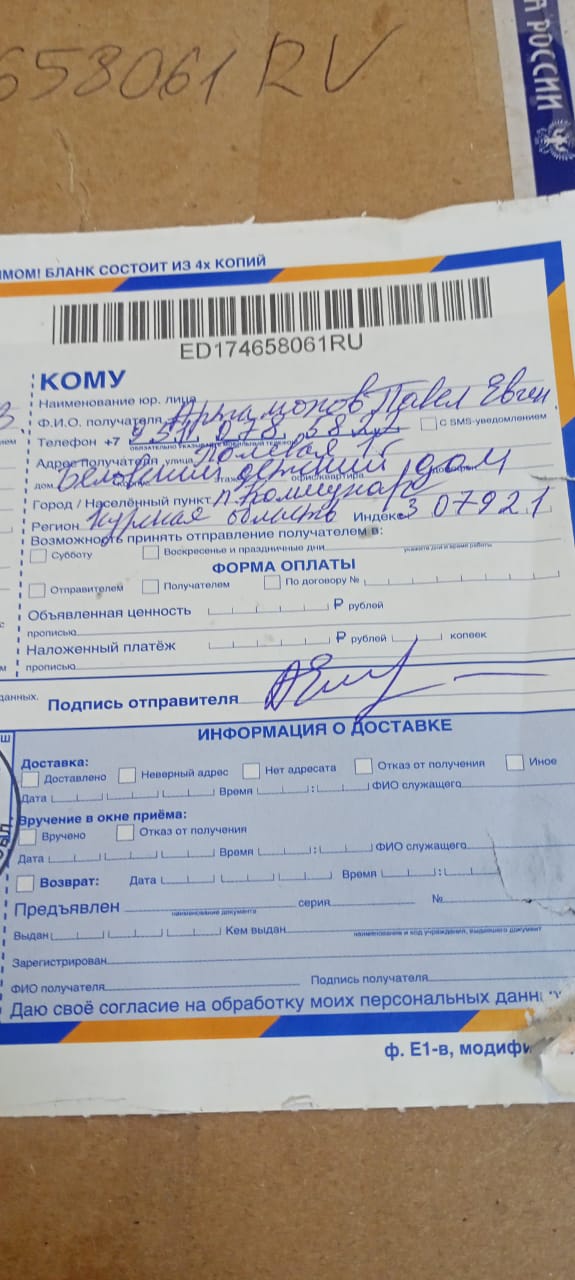 658061RV
А РОССИИ
ИМОМ! БЛАНК СОСТОИТ ИЗ 4х КОПИЙ
ED174658061RU
КОМУ
Наименование юр. лица
Ф.И.О. получателя Артамонов Павел Евген
Телефон +7
С SMS-уведомлением
Адрес получателя улица Полевая
дом Беловский детский дом
Город / Населённый пункт п. Коммунар
Регион Курская область Индекс 307921
Возможность принять отправление получателем в:
Субботу Воскресенье и праздничные дни укажите дни и время работы
ФОРМА ОПЛАТЫ
Отправителем Получателем По договору №
Объявленная ценность ₽ рублей
прописью
Наложенный платёж ₽ рублей копеек
прописью
данных. Подпись отправителя
ИНФОРМАЦИЯ О ДОСТАВКЕ
Доставка:
Доставлено Неверный адрес Нет адресата Отказ от получения Иное
Дата Время : ФИО служащего
Вручение в окне приёма:
Вручено Отказ от получения
Дата Время : ФИО служащего
Возврат: Дата Время :
Предъявлен серия №
наименование документа
Выдан Кем выдан
наименование и код учреждения, выдавшего документ
Зарегистрирован
ФИО получателя Подпись получателя
Даю своё согласие на обработку моих персональных данн
ф. Е1-в, модифи